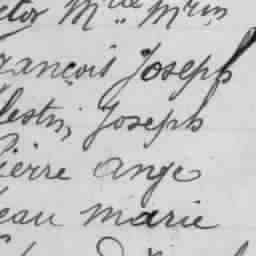 rançois Joseph
lestin, Joseph
ierre ange
ean marie